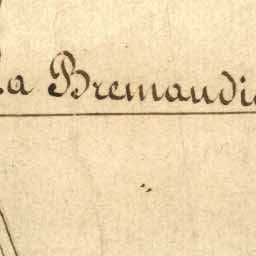 La Bremaudi